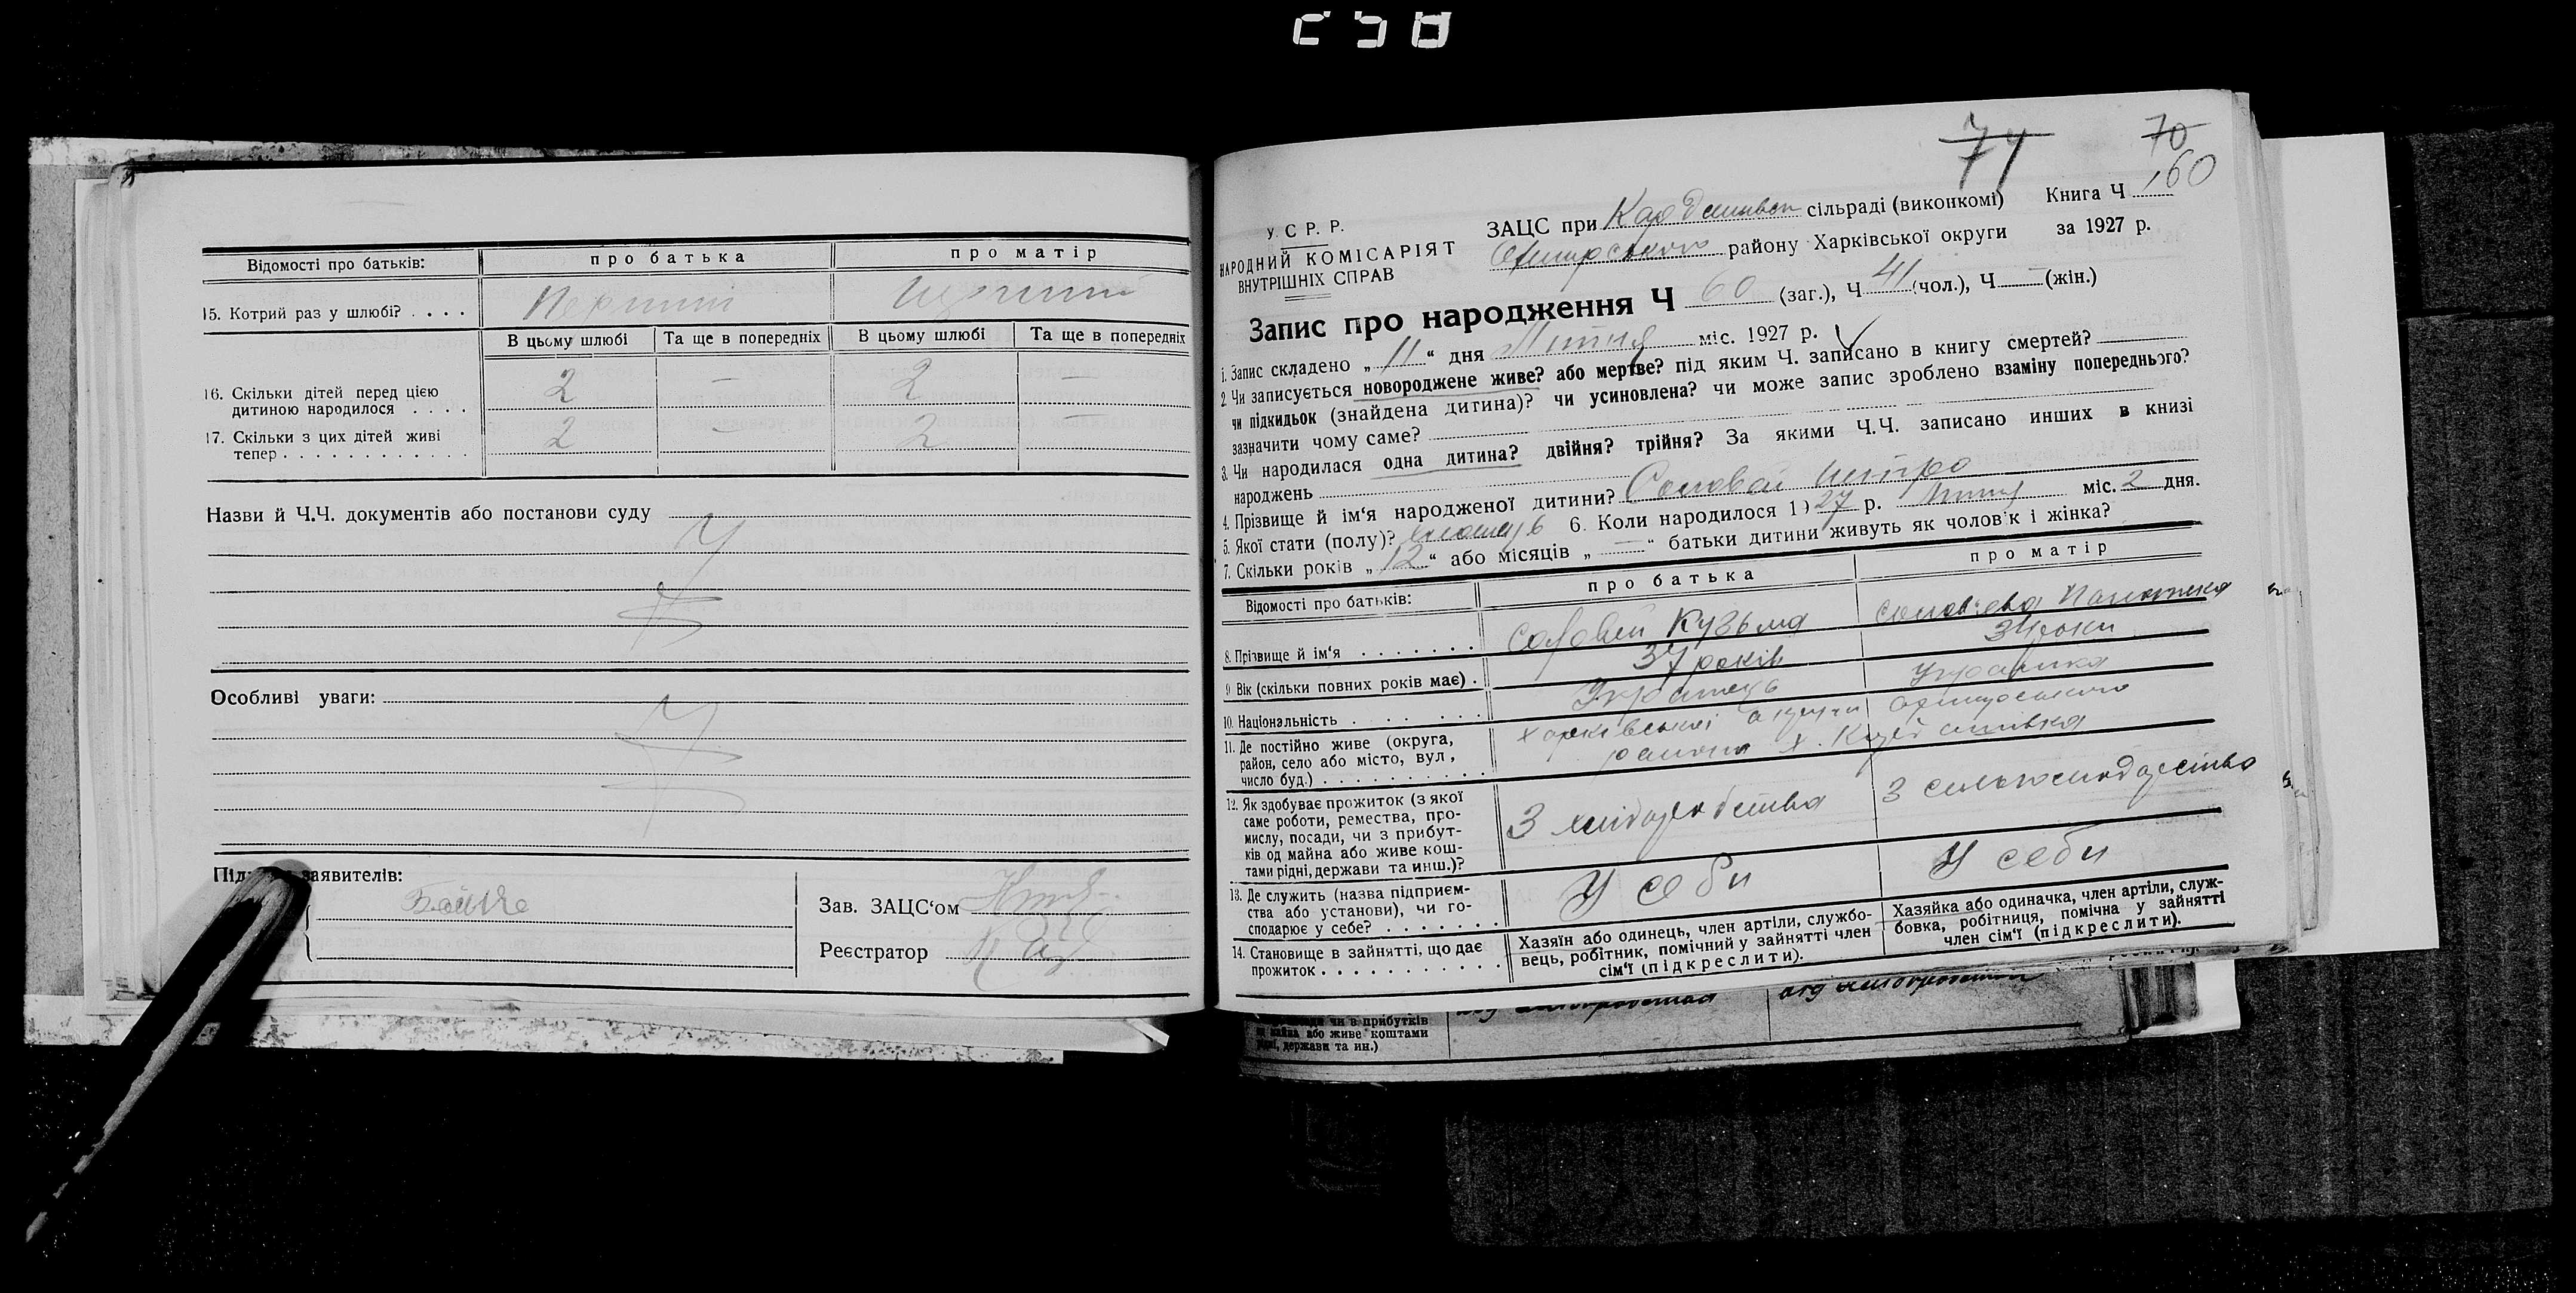 Відомості про батьків:
про батька
про матір
15. Котрий раз у шлюбі? . . . .
Перший
Перший
В цьому шлюбі
Та ще в попередніх
В цьому шлюбі
Та ще в попередніх
16. Скільки дітей перед цією
дитиною народилося . . . .
2 — 2 —
17. Скільки з цих дітей живі
тепер . . . . . . . . . . . .
2 — 2 —
Назви й Ч.Ч. документів або постанови суду
Особливі уваги:
заявителів:
Зав. ЗАЦС‘ом
Реєстратор
74
70
160
У. С Р. Р.
НАРОДНИЙ КОМІСАРІЯТ
ВНУТРІШНІХ СПРАВ
ЗАЦС при сільраді (виконкомі)
Книга Ч
району Харківської округи
за 1927 р.
Запис про народження Ч 60 (заг.), Ч 41 (чол.), Ч — (жін.)
1. Запис складено „ 11 “ дня Липня міс. 1927 р.
2. Чи записується новороджене живе? або мертве? під яким Ч. записано в книгу смертей?
чи підкидьок (знайдена дитина)? чи усиновлена? чи може запис зроблено взаміну попереднього?
зазначити чому саме?
3. Чи народилася одна дитина? двійня? трійня? За якими Ч.Ч. записано инших в книзі
народжень
4. Прізвище й ім‘я народженої дитини? Соловей Петро
5. Якої стати (полу)? хлопець 6. Коли народилося 1) 27 р. Липня міс. 2 дня.
7. Скільки років „ 12 “ або місяців „ — “ батьки дитини живуть як чолов‘к і жінка?
Відомості про батьків:
про батька
про матір
8. Прізвище й ім‘я . . . . . . .
Соловей Кузьма
9. Вік (скільки повних років має) .
37 років
34 роки
10. Національність . . . . . . .
Українець
Українка
11. Де постійно живе (округа,
район, село або місто, вул,
число буд.) . . . . . . . . . .
Харківської округи
району х.
12. Як здобуває прожиток (з якої
саме роботи, ремества, про-
мислу, посади, чи з прибут-
ків од майна або живе кош-
тами рідні, держави та инш.)?
З хліборобства
З
13. Де служить (назва підприєм-
ства або установи), чи го-
сподарює у себе? . . . . . . .
У себи
У себи
14. Становище в зайнятті, що дає
прожиток . . . . . . . . . . .
Хазяїн або одинець, член артіли, службо-
вець, робітник, помічний у зайнятті член
сім‘ї (підкреслити).
Хазяйка або одиначка, член артіли, служ-
бовка, робітниця, помічна у зайнятті
член сім‘ї (підкреслити).
чи в прибутків
або живе коштами
держави та ин.)